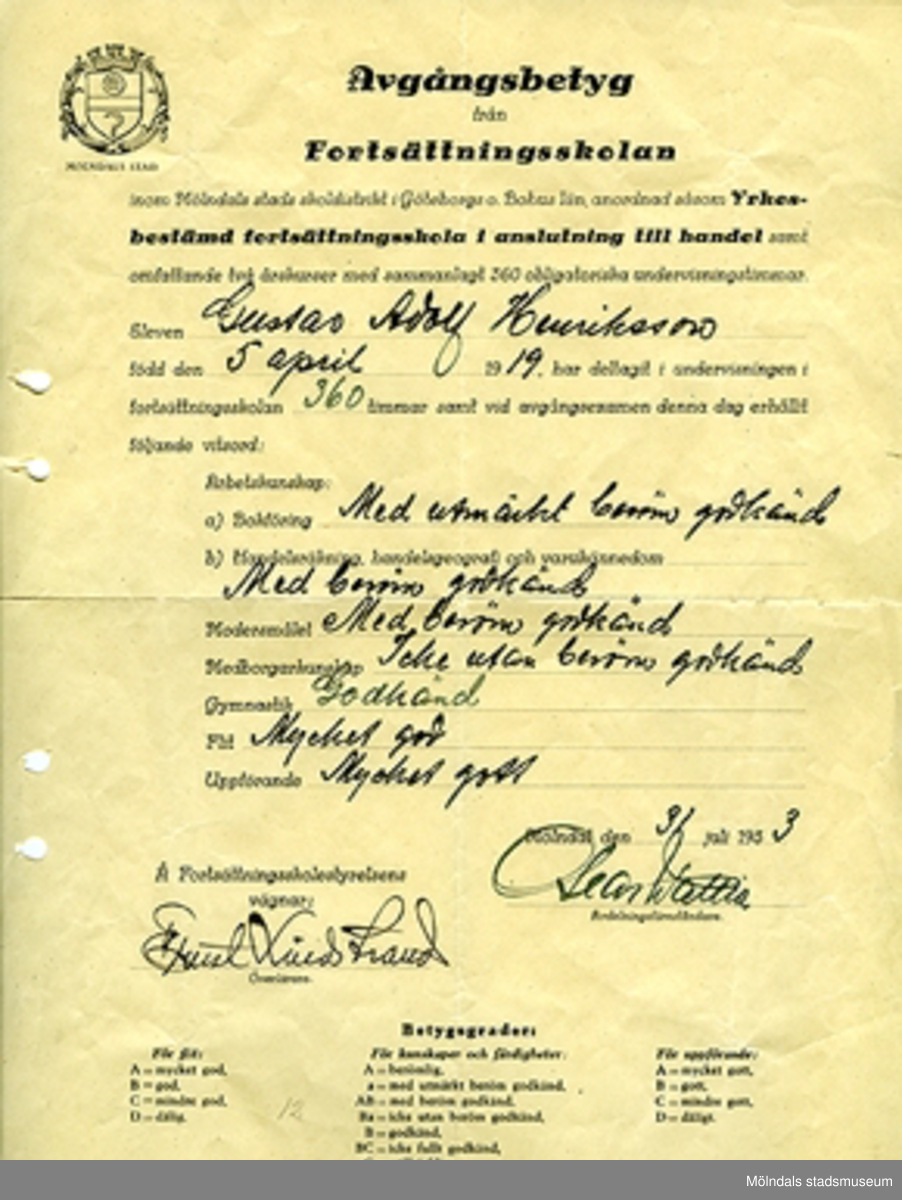 MÖLNDALS STAD
Avgångsbetyg
från
Fortsättningsskolan
inom Mölndals stads skoldistrikt i Göteborgs o. Bohus län, anordnad såsom Yrkes-
bestämd fortsättningsskola i anslutning till handel samt
omfattande två årskurser med sammanlagt 360 obligatoriska undervisningstimmar.
Eleven Gustav Adolf Henriksson
född den 5 april 1919, har deltagit i undervisningen i
fortsättningsskolan 360 timmar samt vid avgångsexamen denna dag erhållit
följande vitsord:
Arbetskunskap:
a) Bokföring Med utmärkt beröm godkänd
b) Handelsräkning, handelsgeografi och varukännedom
Med beröm godkänd
Modersmålet Med beröm godkänd
Medborgarkunskap Icke utan beröm godkänd
Gymnastik Godkänd
Flit Mycket god
Uppförande Mycket gott
Mölndal den 31 juli 1933
Å Fortsättningsskolestyrelsens
vägnar:
Avdelningsföreståndare.
Lindstrand
Överlärare.
Betygsgrader:
För flit: För kunskaper och färdigheter: För uppförande:
A = mycket god, A = berömlig, A = mycket gott,
B = god, a = med utmärkt beröm godkänd, B = gott,
C = mindre god, AB = med beröm godkänd, C = mindre gott,
D = dålig. Ba = icke utan beröm godkänd, D = dåligt.
12 B = godkänd,
BC = icke fullt godkänd,
Mölndals stadsmuseum